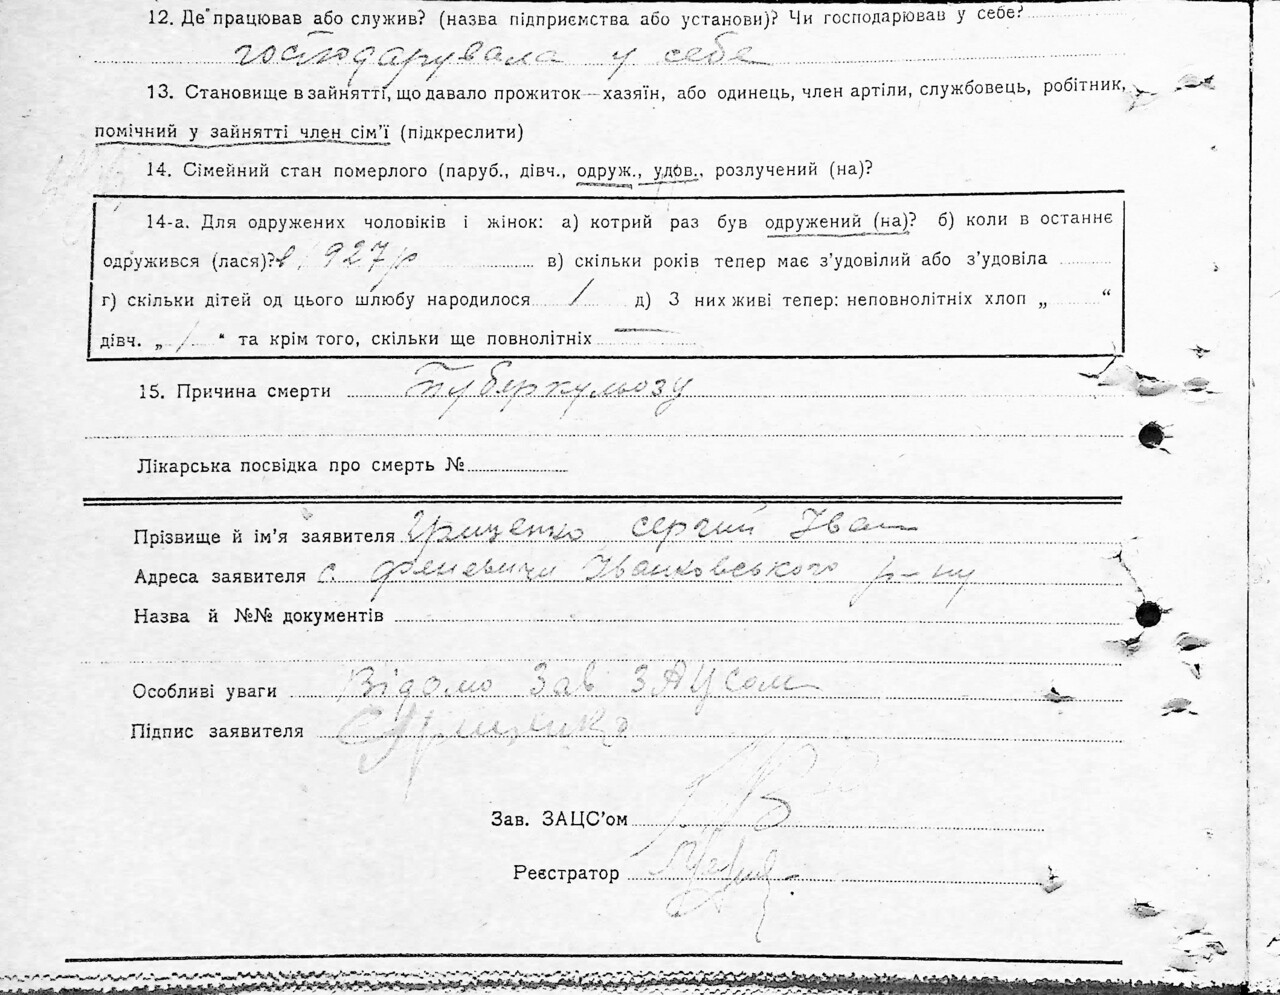 12. Де працював або служив? (назва підприємства або установи)? Чи господарював у себе?
господарувала у себе
13. Становище в зайнятті, що давало прожиток—хазяїн, або одинець, член артіли, службовець, робітник,
помічний у зайнятті член сім’ї (підкреслити)
14. Сімейний стан померлого (паруб., дівч., одруж., удов., розлучений (на)?
14-а. Для одружених чоловіків і жінок: а) котрий раз був одружений (на)? б) коли в останнє
одружився (лася)? в 1927 р в) скільки років тепер має з’удовілий або з’удовіла
г) скільки дітей од цього шлюбу народилося 1 д) З них живі тепер: неповнолітніх хлоп „ “
дівч. „ 1 “ та крім того, скільки ще повнолітніх —
15. Причина смерти Туберкульозу
Лікарська посвідка про смерть №
Прізвище й ім’я заявителя Грищенко Сергий Іван
Адреса заявителя с. Феневичи Іванковського р-ну
Назва й №№ документів
Особливі уваги Відомо Зав ЗАЦСом
Підпис заявителя Грищенко
Зав. ЗАЦС’ом
Реєстратор